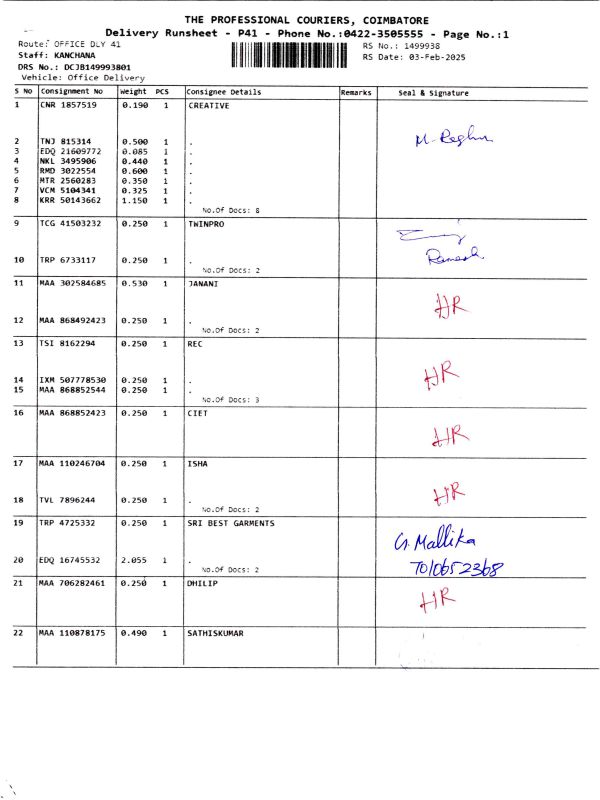 THE PROFESSIONAL COURIERS, COIMBATORE
Delivery Runsheet - P41 - Phone No.:0422-3505555 - Page No.:1
Route: OFFICE DLY 41 RS No.: 1499938
Staff: KANCHANA RS Date: 03-Feb-2025
DRS No.: DCJB149993801
Vehicle: Office Delivery
S No Consignment No Weight PCS Consignee Details Remarks Seal & Signature
1 CNR 1857519 0.190 1 CREATIVE
M. Raghu
2 TNJ 815314 0.500 1 .
3 EDQ 21609772 0.085 1 .
4 NKL 3495906 0.440 1 .
5 RMD 3022554 0.600 1 .
6 MTR 2560283 0.350 1 .
7 VCM 5104341 0.325 1 .
8 KRR 50143662 1.150 1 .
No.Of Docs: 8
9 TCG 41503232 0.250 1 TWINPRO
Ramesh
10 TRP 6733117 0.250 1 .
No.Of Docs: 2
11 MAA 302584685 0.530 1 JANANI
HR
12 MAA 868492423 0.250 1 .
No.Of Docs: 2
13 TSI 8162294 0.250 1 REC
HR
14 IXM 507778530 0.250 1 .
15 MAA 868852544 0.250 1 .
No.Of Docs: 3
16 MAA 868852423 0.250 1 CIET
HR
17 MAA 110246704 0.250 1 ISHA
HR
18 TVL 7896244 0.250 1 .
No.Of Docs: 2
19 TRP 4725332 0.250 1 SRI BEST GARMENTS
G. Mallika
20 EDQ 16745532 2.055 1 .
7010652368
No.Of Docs: 2
21 MAA 706282461 0.250 1 DHILIP
HR
22 MAA 110878175 0.490 1 SATHISKUMAR